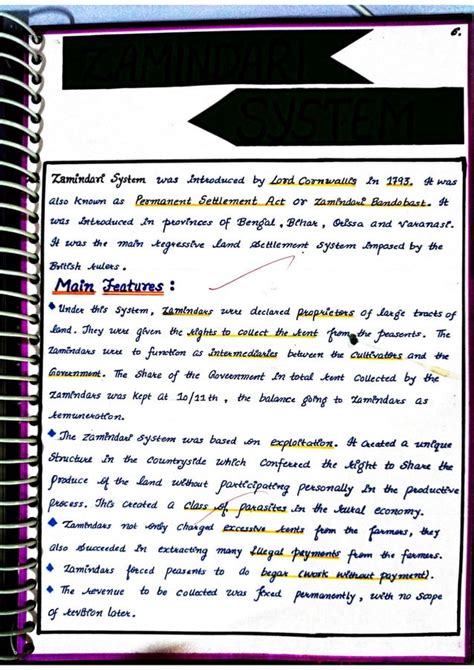 6.
ZAMINDARI
SYSTEM
Zamindari System was introduced by Lord Cornwallis in 1793. It was
also known as Permanent Settlement Act or Zamindari Bandobast. It
was introduced in provinces of Bengal, Bihar, Orissa and Varanasi.
It was the main regressive land settlement system imposed by the
British rulers.
Main Features :
Under this System, Zamindars were declared proprietors of large tracts of
land. They were given the rights to collect the rent from the peasents. The
Zamindars were to function as intermediaries between the cultivators and the
Government. The Share of the Government in total rent collected by the
Zamindars was kept at 10/11th, the balance going to Zamindars as
remuneration.
The Zamindari System was based on exploitation. It created a unique
Structure in the Countryside which conferred the right to Share the
produce of the land without participating personally in the productive
process. This created a class of parasites in the rural economy.
Zamindars not only charged excessive rents from the farmers, they
also succeeded in extracting many illegal payments from the farmers.
Zamindars forced peasents to do begar (work without payment).
The Revenue to be collected was fixed permanently, with no scope
of revision later.